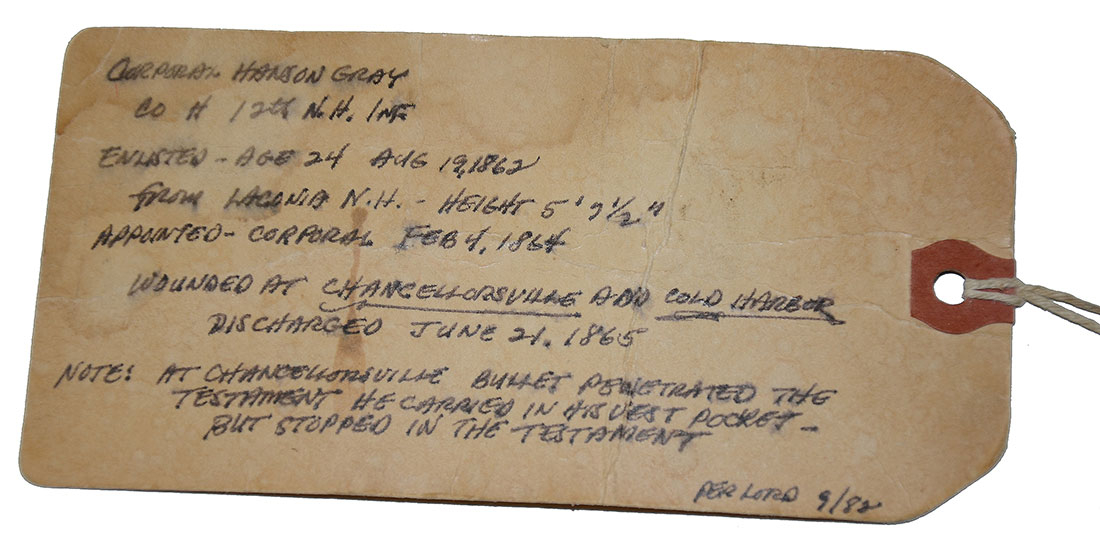 CORPORAL HANSON GRAY
CO H 12th N.H. INF.
ENLISTED - AGE 24 AUG 19, 1862
from LACONIA N.H. - HEIGHT 5' 9 1/2"
APPOINTED - CORPORAL FEB 4, 1864
WOUNDED AT CHANCELLORSVILLE AND COLD HARBOR
DISCHARGED JUNE 21, 1865
NOTE: AT CHANCELLORSVILLE BULLET PENETRATED THE
TESTAMENT HE CARRIED IN HIS VEST POCKET -
BUT STOPPED IN THE TESTAMENT
PER LORD 9/82